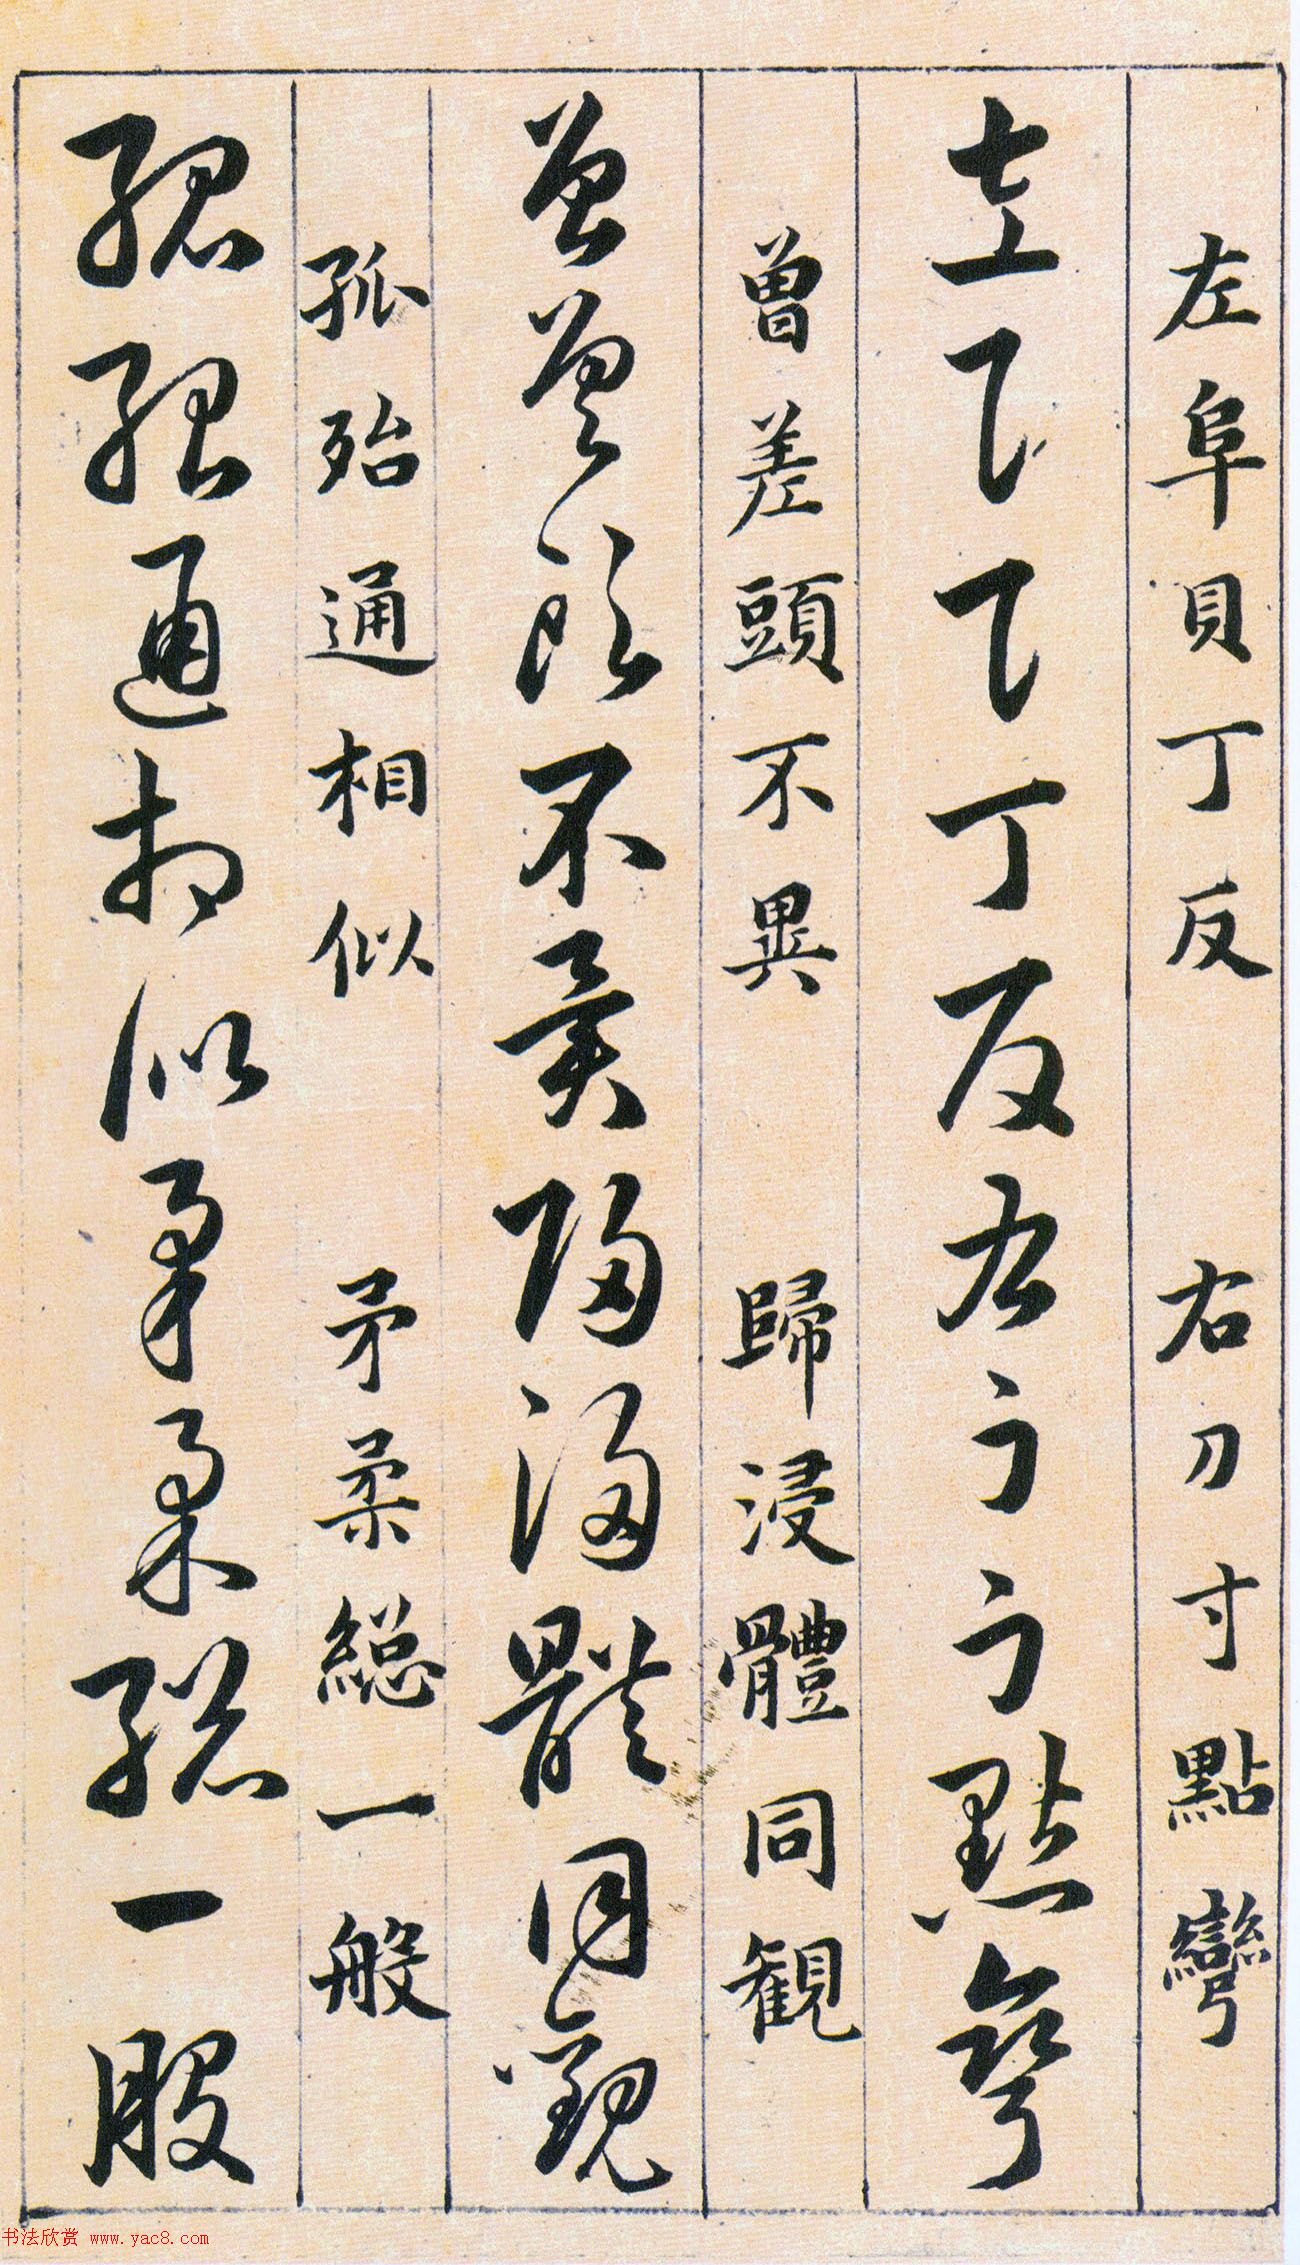 左阜貝丁反 右刀寸點彎
左阜貝丁反右刀寸點彎
曾差頭不異 歸浸體同観
曾差頭不異歸浸體同觀
孤殆通相似 矛柔総一般
孤殆通相似矛柔總一般
书法欣赏 www.yac8.com